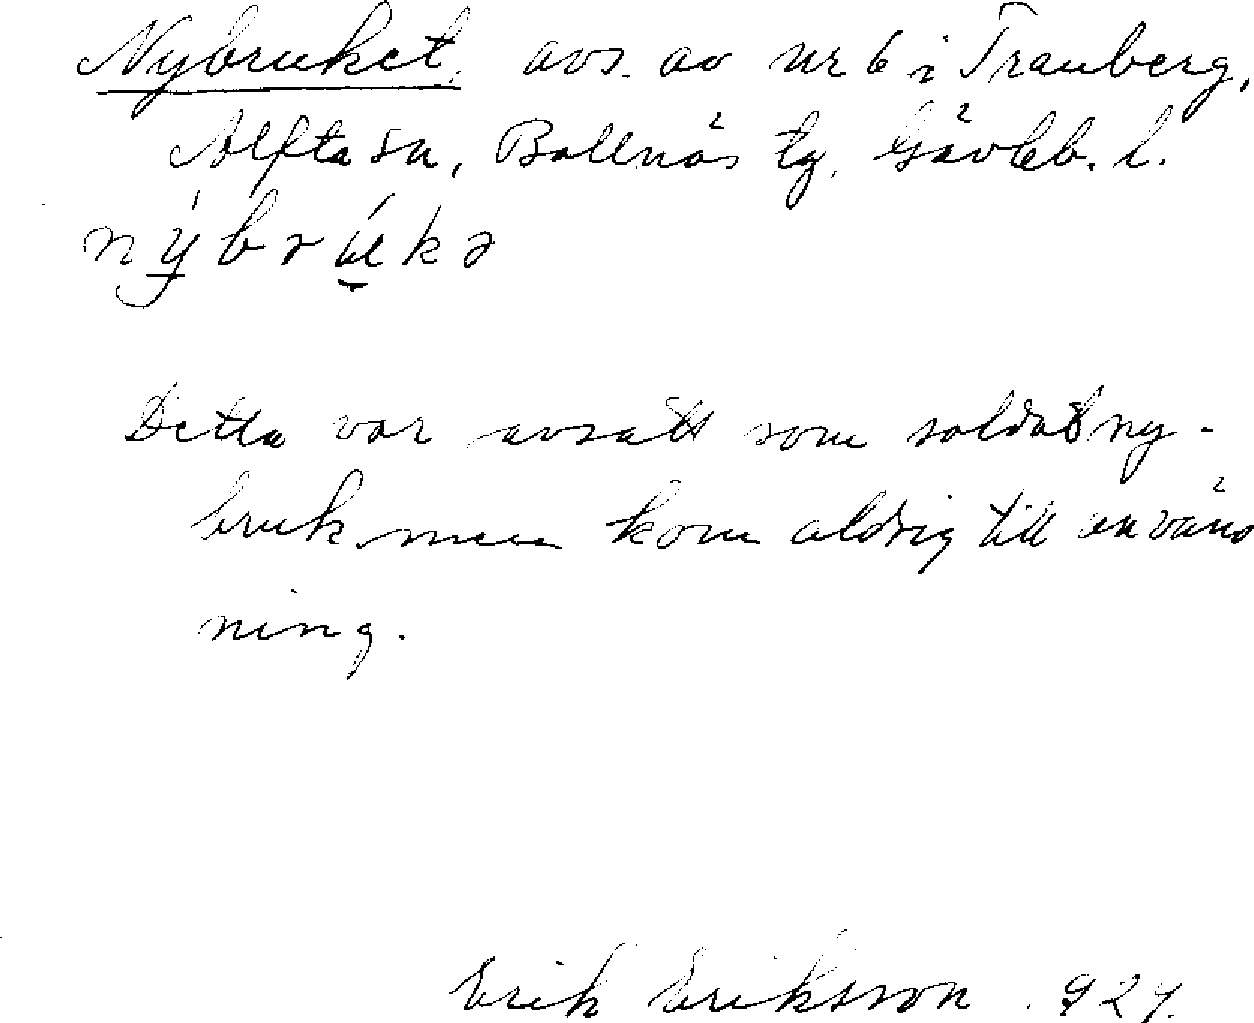 Nybruket, avs. av nr 6 i Tranberg,
Alfta sn, Bollnäs tg, Gävleb. l.
nýbrúkə
Detta var avsatt som soldatny-
bruk men kom aldrig till använd
ning.
Erik Eriksson . 927.